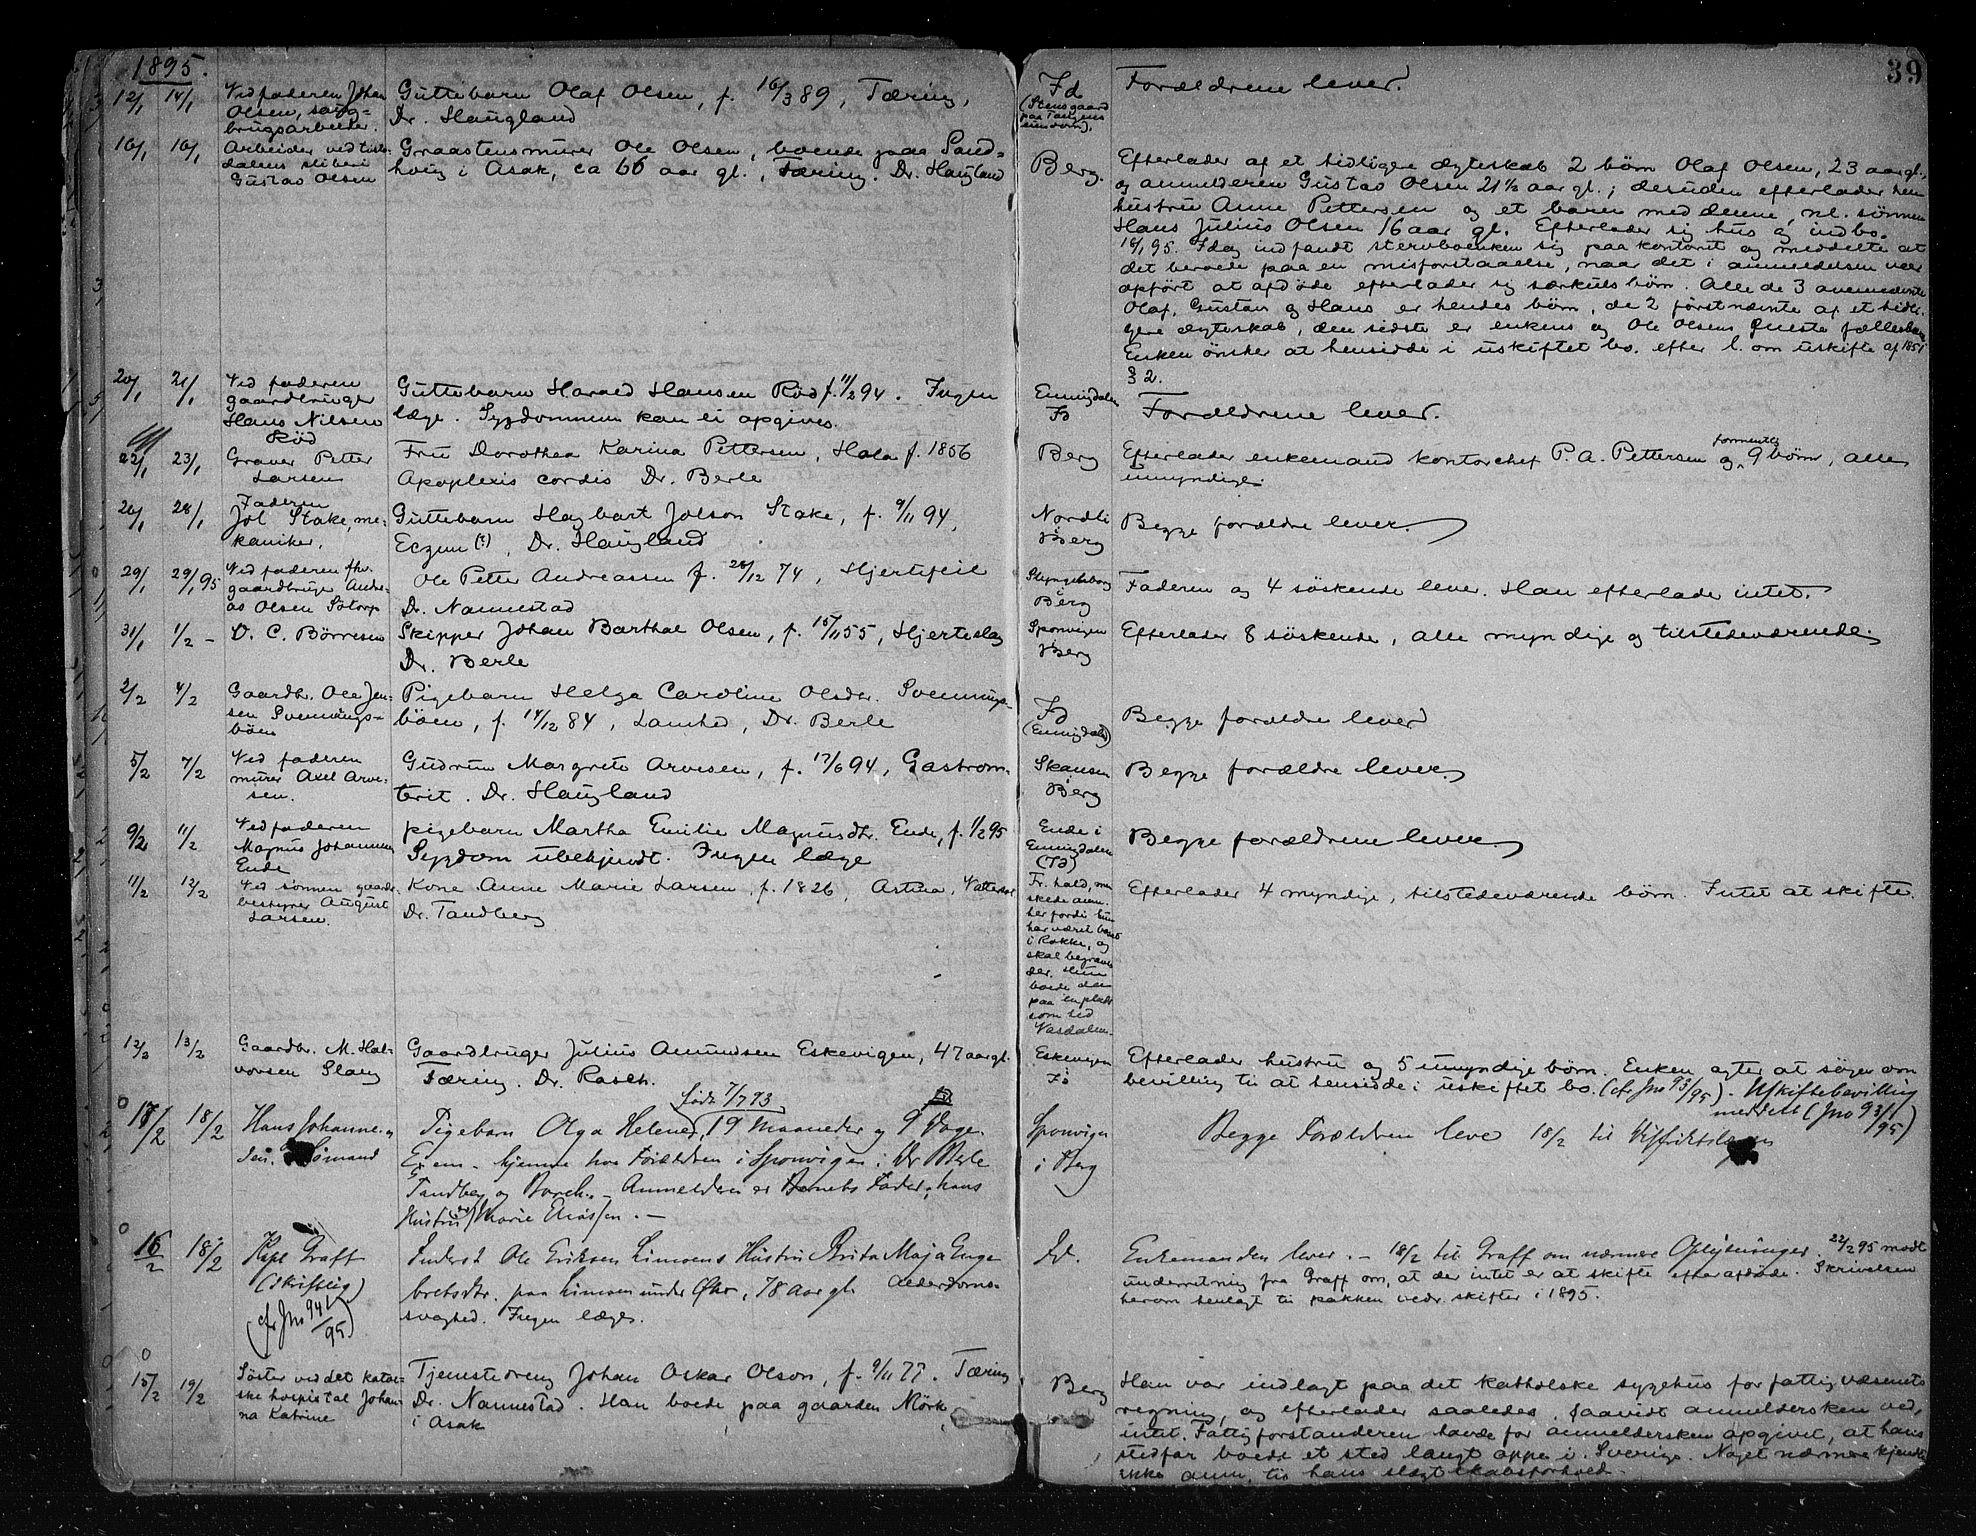 39
1895.
12/1 14/1 Ved faderen Johan Guttebarn Olaf Olsen, f. 16/3 89, Tæring, Id Forældrene lever.
Olsen, saug- Dr. Haugland (Stensgaard
brugsarbeider. paa Tangens eiendom).
16/1 16/1 Arbeider ved Graastensmurer Ole Olsen, boende paa Sand- Berg. Efterlader af et tidligere ægteskab 2 børn Olaf Olsen, 23 aar gl.,
dalens sliberi hvig i Asak, ca 66 aar gl., Tæring. Dr. Haugland og anmelderen Gustav Olsen 21½ aar gl.; desuden efterlader han
Gustav Olsen hustru Anne Pettersen og et barn med denne, nl. sønnen
Hans Julius Olsen 16 aar gl. Efterlader sig hus og indbo.
18/1 95. Idag indfandt stervboenken sig paa kontoret og meddelte at
det beroede paa en misforstaaelse, naar det i anmeldelsen var
opført at afdøde efterlader sig særkuls børn. Alle de 3 avennævnte
Olaf, Gustav og Hans er hendes børn, de 2 førstnævnte af et tidli-
gere ægteskab, den sidste er enkens og Ole Olsens eneste fællesbarn
Enken ønsker at hensidde i uskiftet bo. efter l. om uskifte af 1851
§ 2.
20/1 21/1 Ved faderen Guttebarn Harald Hansen Rød f. 11/2 94. Ingen Enningdalen Forældrene lever.
gaardbruger læge. Sygdommen kan ei opgives. Id
Hans Nilsen
Rød
22/1 23/1 Graver Petter Fru Dorothea Karina Pettersen, Hola f. 1856 Berg Efterlader enkemand kontorchef P. A. Pettersen og formentlig 9 børn, alle
Larsen Apoplexis cordis Dr. Berle umyndige.
20/1 28/1 Faderen Guttebarn Hagbart Jolson Stake, f. 9/11 94, Nordli Begge forældre lever.
Jol Stake, me- Eczem (?), Dr. Haugland Berg
kaniker.
29/1 29/1 95 Ved faderen fhv. Ole Petter Andreassen f. 28/12 74, Hjertefeil Faderen og 4 søskende lever. Han efterlade intet.
gaardbruger Andre- Dr. Nannestad Berg
as Olsen Sötorp
31/1 1/2 – O. C. Börresen Skipper Johan Barthal Olsen, f. 15/11 55, Hjerteslag Sponvigen Efterlader 8 søskende, alle myndige og tilstedeværende.
Dr. Berle Berg
2/2 4/2 Gaardbr. Ole Jen- Pigebarn Helga Caroline Olsdr. Svennings- Id Begge forældre lever
sen Svennings- böen, f. 14/12 84, Dr. Berle (Enningdalen)
böen
5/2 7/2 Ved faderen Gudrun Margrete Arvesen, f. 17/6 94, Gastroen- Skansen Begge forældre lever.
murer Axel Arve- terit. Dr. Haugland Berg
sen.
9/2 11/2 Ved faderen pigebarn Martha Emilie Magnusdtr. Ende, f. 1/2 95 Ende i Begge forældrene lever.
Magnus Johannesen Sygdom ubekjendt. Ingen læge Enningdalen
Ende (Id)
11/2 12/2 Ved sønnen gaards- Kone Anne Marie Larsen, f. 1826, Astma, Vattersot Fr.hald, øn- Efterlader 4 myndige, tilstedeværende børn. Intet at skifte.
bestyrer August Dr. Tandberg skede anm.
Larsen. her fordi hun
har været boende
i Rokke, og
skal begraves
der. Hun
boede der
paa en plads
som hed
Vasdalen.
12/2 13/2 Gaardbr. M. Hal- Gaardbruger Julius Amundsen Eskevigen, 47 aar gl. Eskevigen Efterlader hustru og 5 umyndige børn. Enken agter at søge om
vorsen Slang Tæring. Dr. Rasch. Id bevilling til at hensidde i uskiftet bo. (cfr Jno 93/95). Uskiftebevilling
meddelt (Jno 93/95)
17/2 18/2 Hans Johanne- Pigebarn Olga Helene, født 7/7 93 19 Maaneder og 9 Dage. Sponvigen Begge Forældren leve 18/2 til
sen. Sømand hjemme hos Forældren i Sponvigen: Dr Berle i Berg
Tandberg og Borch. – Anmelderen er Barnets Fader; hans
Hustru Marie Eliassen. –
16/2 18/2 Kapl Graff Inderst Ole Eriksen Limoens Hustru Brita Maja Enge Id. Enkemanden lever. – 18/2 til Graff om nærmere Oplysninger. 22/2 95 modt
(skriftlig) bretsdtr. paa Limoen under Øbr, 78 aar gl. Alderdoms- underretning fra Graff om, at der intet er at skifte efter afdøde. Skrivelsen
(cfr Jno 94/95) svaghed. Ingen læge. herom henlagt til pakken vedr. skifter i 1895.
15/2 19/2 Söster ved det katol- Tjenestedreng Johan Oskar Olson, f. 9/11 77. Tæring Berg Han var indlagt paa det katholske sygehus for fattigvæsenets
ske hospital Johan- Dr. Nannestad. Han boede paa gaarden Mörk regning, og efterlader saaledes, saavidt anmeldersken ved,
na Katrine i Asak intet. Fattigforstanderen havde for anmeldersken opgivet, at hans
stedfar boede et sted langt oppe i Sverige. Noget nærmere kjendte
ikke anm. til hans slægtskabsforhold.